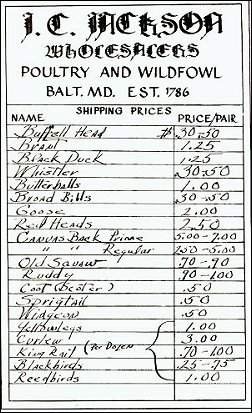 J. C. JACKSON
WHOLESALERS
POULTRY AND WILDFOWL
BALT. MD. EST. 1786
SHIPPING PRICES
NAME PRICE/PAIR
Buffell Head $ .30-.50
Brant 1.25
Black Duck 1.25
Whistler .30-.50
Butterballs 1.00
Broad Bills .30-.50
Goose 2.00
Red Heads 2.50
Canvas Back Prime 5.00-7.00
" " Regular 2.50-5.00
Old Squaw .70-.90
Ruddy .90-1.00
Coot (Sester) .50
Sprigtail .50
Widgeon .50
Yellowlegs 1.00
Curlew 3.00
King Rail (Per Dozen .70-1.00
Blackbirds .25-.75
Reedbirds 1.00